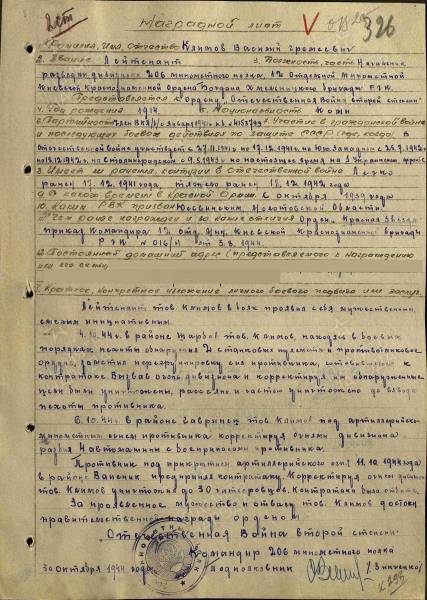 Наградной лист
326
1. Фамилия, Имя, Отчество Климов Василий
2. Звание Лейтенант 3. Должность, часть Начальник
разведки дивизиона 206 минометного полка, 12 Отдельной Минометной
Киевской Краснознаменной Ордена Богдана Хмельницкого бригады РГК.
Представляется к Ордену "Отечественная Война второй степени"
4. Год рождения 1914 5. Национальность
6. Партийность Член ВКП/б/ 7. Участие в гражданской войне
и последующих боевых действиях по защите СССР (где, когда) В
отечественной войне участвует с 27.11.1941 по 17.12.1941 на Юго-Западном с 25.9.1942
по 18.12.1942, на Сталинградском с 9.5.1943 по настоящее время на 1 Украинском фронте
8. Имеет ли ранения, контузии в отечественной войне Легко
ранен 17.12.1941 года, тяжело ранен 18.12.1942 года
9. С какого времени в Красной Армии С октября 1939 года
10. Каким РВК призван Юсьвинским, Молотовской области
11. Чем ранее награжден и за какие отличия Орден Красная Звезда
приказ Командира 12 отд. мин. Киевской Краснознаменной бригады
РГК № 016/н от 3.8.1944.
12. Постоянный домашний адрес (представляемого к награждению
или его семьи)
I. Краткое, конкретное изложение личного боевого подвига или заслуг.
Лейтенант тов. Климов в боях проявил себя мужественным,
смелым инициативным.
в районе тов. Климов, находясь в боевых
порядках пехоты обнаружил 2 становых пулемета и противотанковое
орудие, заметил перегруппировку сил противника, готовившегося к
контратаке. Вызвав огонь дивизиона и корректируя им обнаруженные
цели были уничтожены, рассеяно и частью уничтожено до взвода
пехоты противника.
6.10.44г. в районе тов. Климов под артиллерийско-
минометным огнем противника корректируя огнем дивизиона
разбил 4 автомашины с боеприпасами противника.
Противник под прикрытием артиллерийского огня 11.10.1944 года
в районе предпринял контратаку. Корректируя огнем дивизиона
тов. Климов уничтожил до 30 гитлеровцев. Контратака была отбита.
За проявленное мужество и отвагу тов. Климов достоин
правительственной награды ордена
Отечественная Война второй степени.
Командир 206 минометного полка
30 октября 1944 года Подполковник